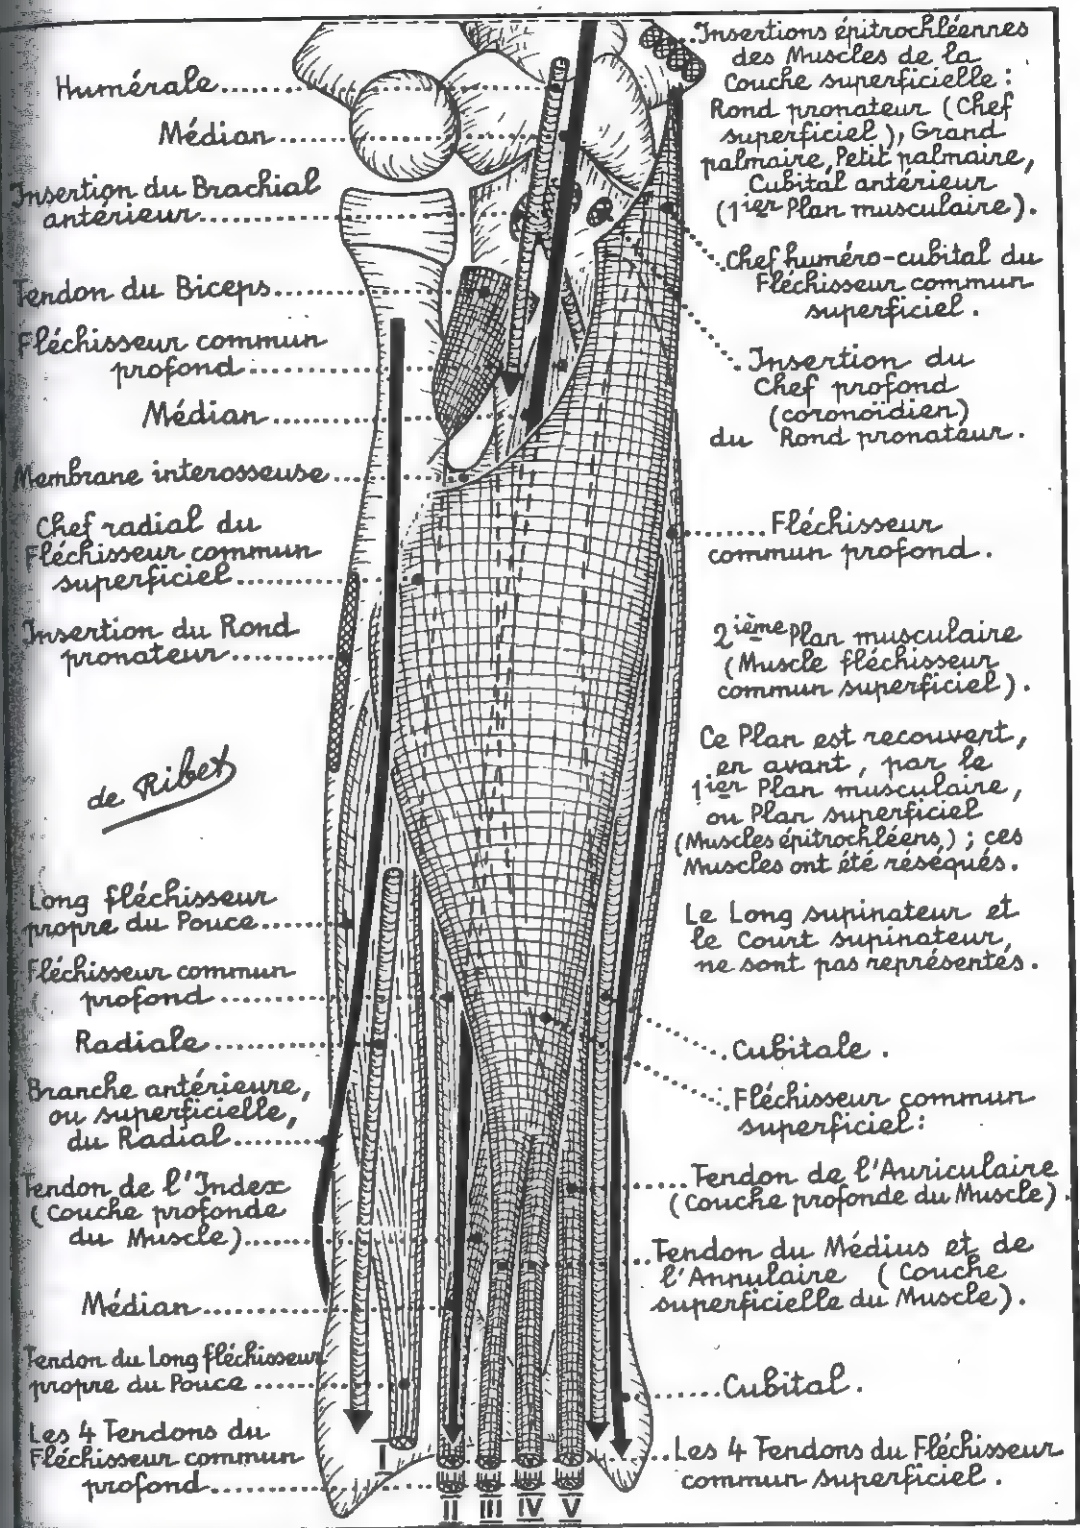 Humérale
Médian
Insertion du Brachial
antérieur
Tendon du Biceps
Fléchisseur commun
profond
Médian
Membrane interosseuse
Chef radial du
Fléchisseur commun
superficiel
Insertion du Rond
pronateur
de Ribet
Long fléchisseur
propre du Pouce
Fléchisseur commun
profond
Radiale
Branche antérieure,
ou superficielle,
du Radial
Tendon de l'Index
(Couche profonde
du Muscle)
Médian
Tendon du Long fléchisseur
propre du Pouce
Les 4 Tendons du
Fléchisseur commun
profond
Insertions épitrochléennes
des Muscles de la
Couche superficielle :
Rond pronateur (Chef
superficiel), Grand
palmaire, Petit palmaire,
Cubital antérieur
(1ier Plan musculaire).
Chef huméro-cubital du
Fléchisseur commun
superficiel.
Insertion du
Chef profond
(coronoïdien)
du Rond pronateur.
Fléchisseur
commun profond.
2ième Plan musculaire
(Muscle fléchisseur
commun superficiel).
Ce Plan est recouvert,
en avant, par le
1ier Plan musculaire,
ou Plan superficiel
(Muscles épitrochléens) ; ces
Muscles ont été réséqués.
Le Long supinateur et
le Court supinateur,
ne sont pas représentés.
Cubitale.
Fléchisseur commun
superficiel:
Tendon de l'Auriculaire
(Couche profonde du Muscle).
Tendon du Médius et de
l'Annulaire (Couche
superficielle du Muscle).
Cubital.
Les 4 Tendons du Fléchisseur
commun superficiel.
I
II III IV V